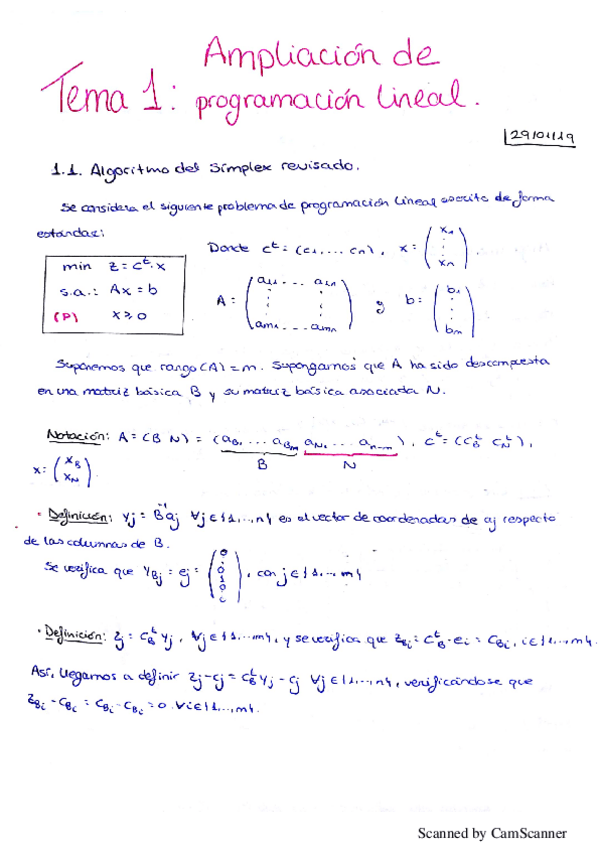 Ampliación de
Tema 1: programación lineal.
29/01/19
1.1. Algoritmo del simplex revisado.
Se considera el siguiente problema de programación lineal escrito de forma
estándar:
min z = cᵗ·x
s.a.: Ax = b
(P) x ≥ 0
Donde cᵗ = (c₁, ... cₙ), x = (x₁ ⋮ xₙ).
A = (a₁₁ ... a₁ₙ ⋮ ⋮ aₘ₁ ... aₘₙ) y b = (b₁ ⋮ bₘ)
Suponemos que rango(A) = m. Supongamos que A ha sido descompuesta
en una matriz básica B y su matriz básica asociada N.
Notación: A = (B N) = (a_B₁ ... a_Bₘ a_N₁ ... a_n-m), cᵗ = (c_Bᵗ c_Nᵗ),
B N
x = (x_B x_N).
• Definición: yⱼ = B⁻¹aⱼ ∀j∈{1,...,n} es el vector de coordenadas de aⱼ respecto
de las columnas de B.
Se verifica que y_Bⱼ = eⱼ = (0 ⋮ 0 1 0 ⋮ 0), con j∈{1,...,m}
• Definición: zⱼ = c_Bᵗ yⱼ, ∀j∈{1,...,m}, y se verifica que z_Bᵢ = c_Bᵗ·eᵢ = c_Bᵢ, i∈{1,...,m}.
Así, llegamos a definir zⱼ-cⱼ = c_Bᵗ yⱼ - cⱼ ∀j∈{1,...,n}, verificándose que
z_Bᵢ - c_Bᵢ = c_Bᵢ - c_Bᵢ = 0 ∀i∈{1,...,m}.
Scanned by CamScanner